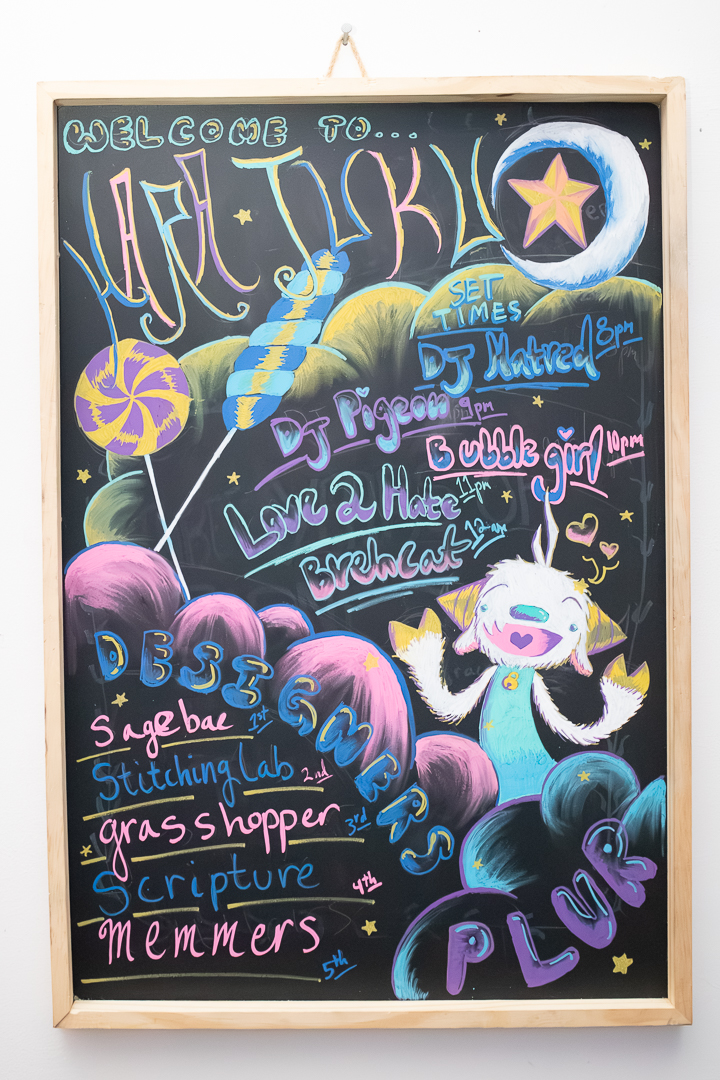 WELCOME TO...
HARAJUKU
SET
TIMES
DJ Hatred 8pm
DJ Pigeon 9pm
Bubble girl 10pm
Love 2 Hate 11pm
Brewcat 12am
DESIGNERS
Sagebae 1st
Stitching Lab 2nd
grasshopper 3rd
Scripture 4th
Memmers 5th
PLUR